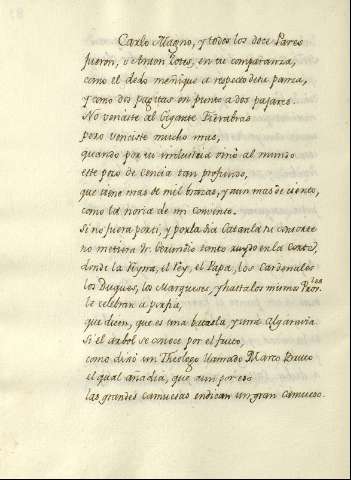 Carlo Magno, y todos los doce Pares
fueron, o Anton Zotes, en tu comparanza,
como el dedo meñique a respecto de tu panza,
y como dos pagitas en puesto a dos pajares.
No venciste al Gigante Fierabras
pero venciste mucho mas,
quando por tu industria vino al mundo
este pozo de ciencia tan profundo,
que tiene mas de mil brazas, y aun mas de ciento,
como la noria de mi convento.
Si no fuera por ti, y por la tia Catanla tu consorte
no metiera Fr. Gerundio tanto ruydo en la Corte,
donde la Reyna, el Rey, el Papa, los Cardenales
los Duques, los Marqueses, y hasta los mismos
le celebran a porfia,
que dicen, que es una bacaela y una algaravia
Si el arbol se conoce por el fruto,
como dixo un Theologo llamado Marco Bruto
el qual añadia, que aun por eso
las grandes camuesas indican un gran camueso.